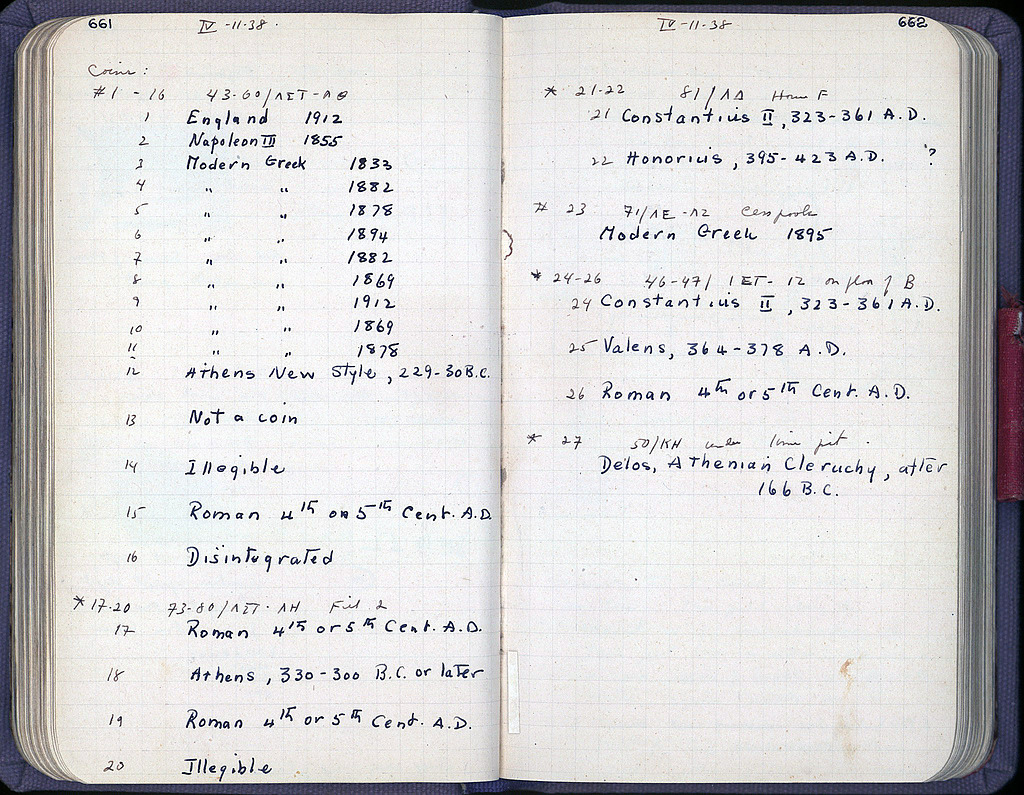 661
IV -11-38.
Coins:
#1 - 16 43-60/ΛΣΤ-ΛΘ
1 England 1912
2 Napoleon III 1855
3 Modern Greek 1833
4 " " 1882
5 " " 1878
6 " " 1894
7 " " 1882
8 " " 1869
9 " " 1912
10 " " 1869
11 " " 1878
12 Athens New Style, 229-30 B.C.
13 Not a coin
14 Illegible
15 Roman 4th or 5th Cent. A.D.
16 Disintegrated
* 17-20 73-80/ΛΣΤ-ΛΗ Fill 2
17 Roman 4th or 5th Cent. A.D.
18 Athens, 330-300 B.C. or later
19 Roman 4th or 5th Cent. A.D.
20 Illegible
662
IV -11-38
* 21-22 81/ΛΔ House F
21 Constantius II, 323-361 A.D.
22 Honorius, 395-423 A.D. ?
* 23 71/ΛΕ-ΛΖ Cesspools
Modern Greek 1895
* 24-26 46-47/ on floor of B
24 Constantius II, 323-361 A.D.
25 Valens, 364-378 A.D.
26 Roman 4th or 5th Cent. A.D.
* 27 50/ΚΗ under lime pit.
Delos, Athenian Cleruchy, after
166 B.C.